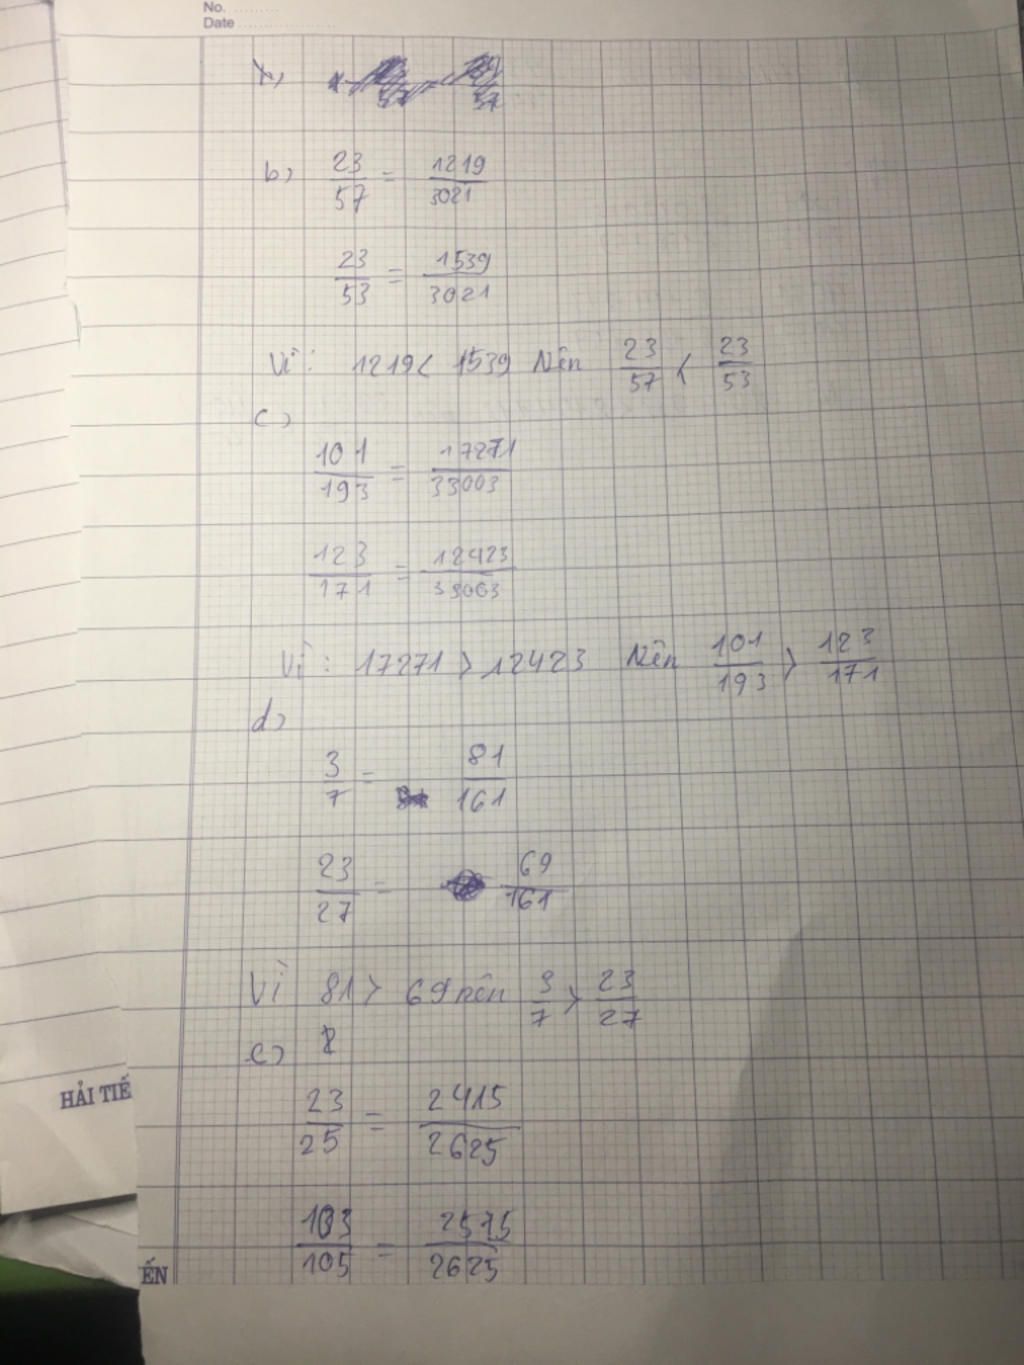 No. .........
Date ......................
b) 23/57 = 1219/3021
23/53 = 1539/3021
Vì: 1219 < 1539 Nên 23/57 < 23/53
c)
101/193 = 17271/33003
123/171 = 12423/33003
Vì: 17271 > 12423 Nên 101/193 > 123/171
d)
3/7 = 81/161
23/27 = 69/161
Vì 81 > 69 nên 3/7 > 23/27
e)
23/25 = 2415/2625
103/105 = 2575/2625
HẢI TIẾ
ẾN